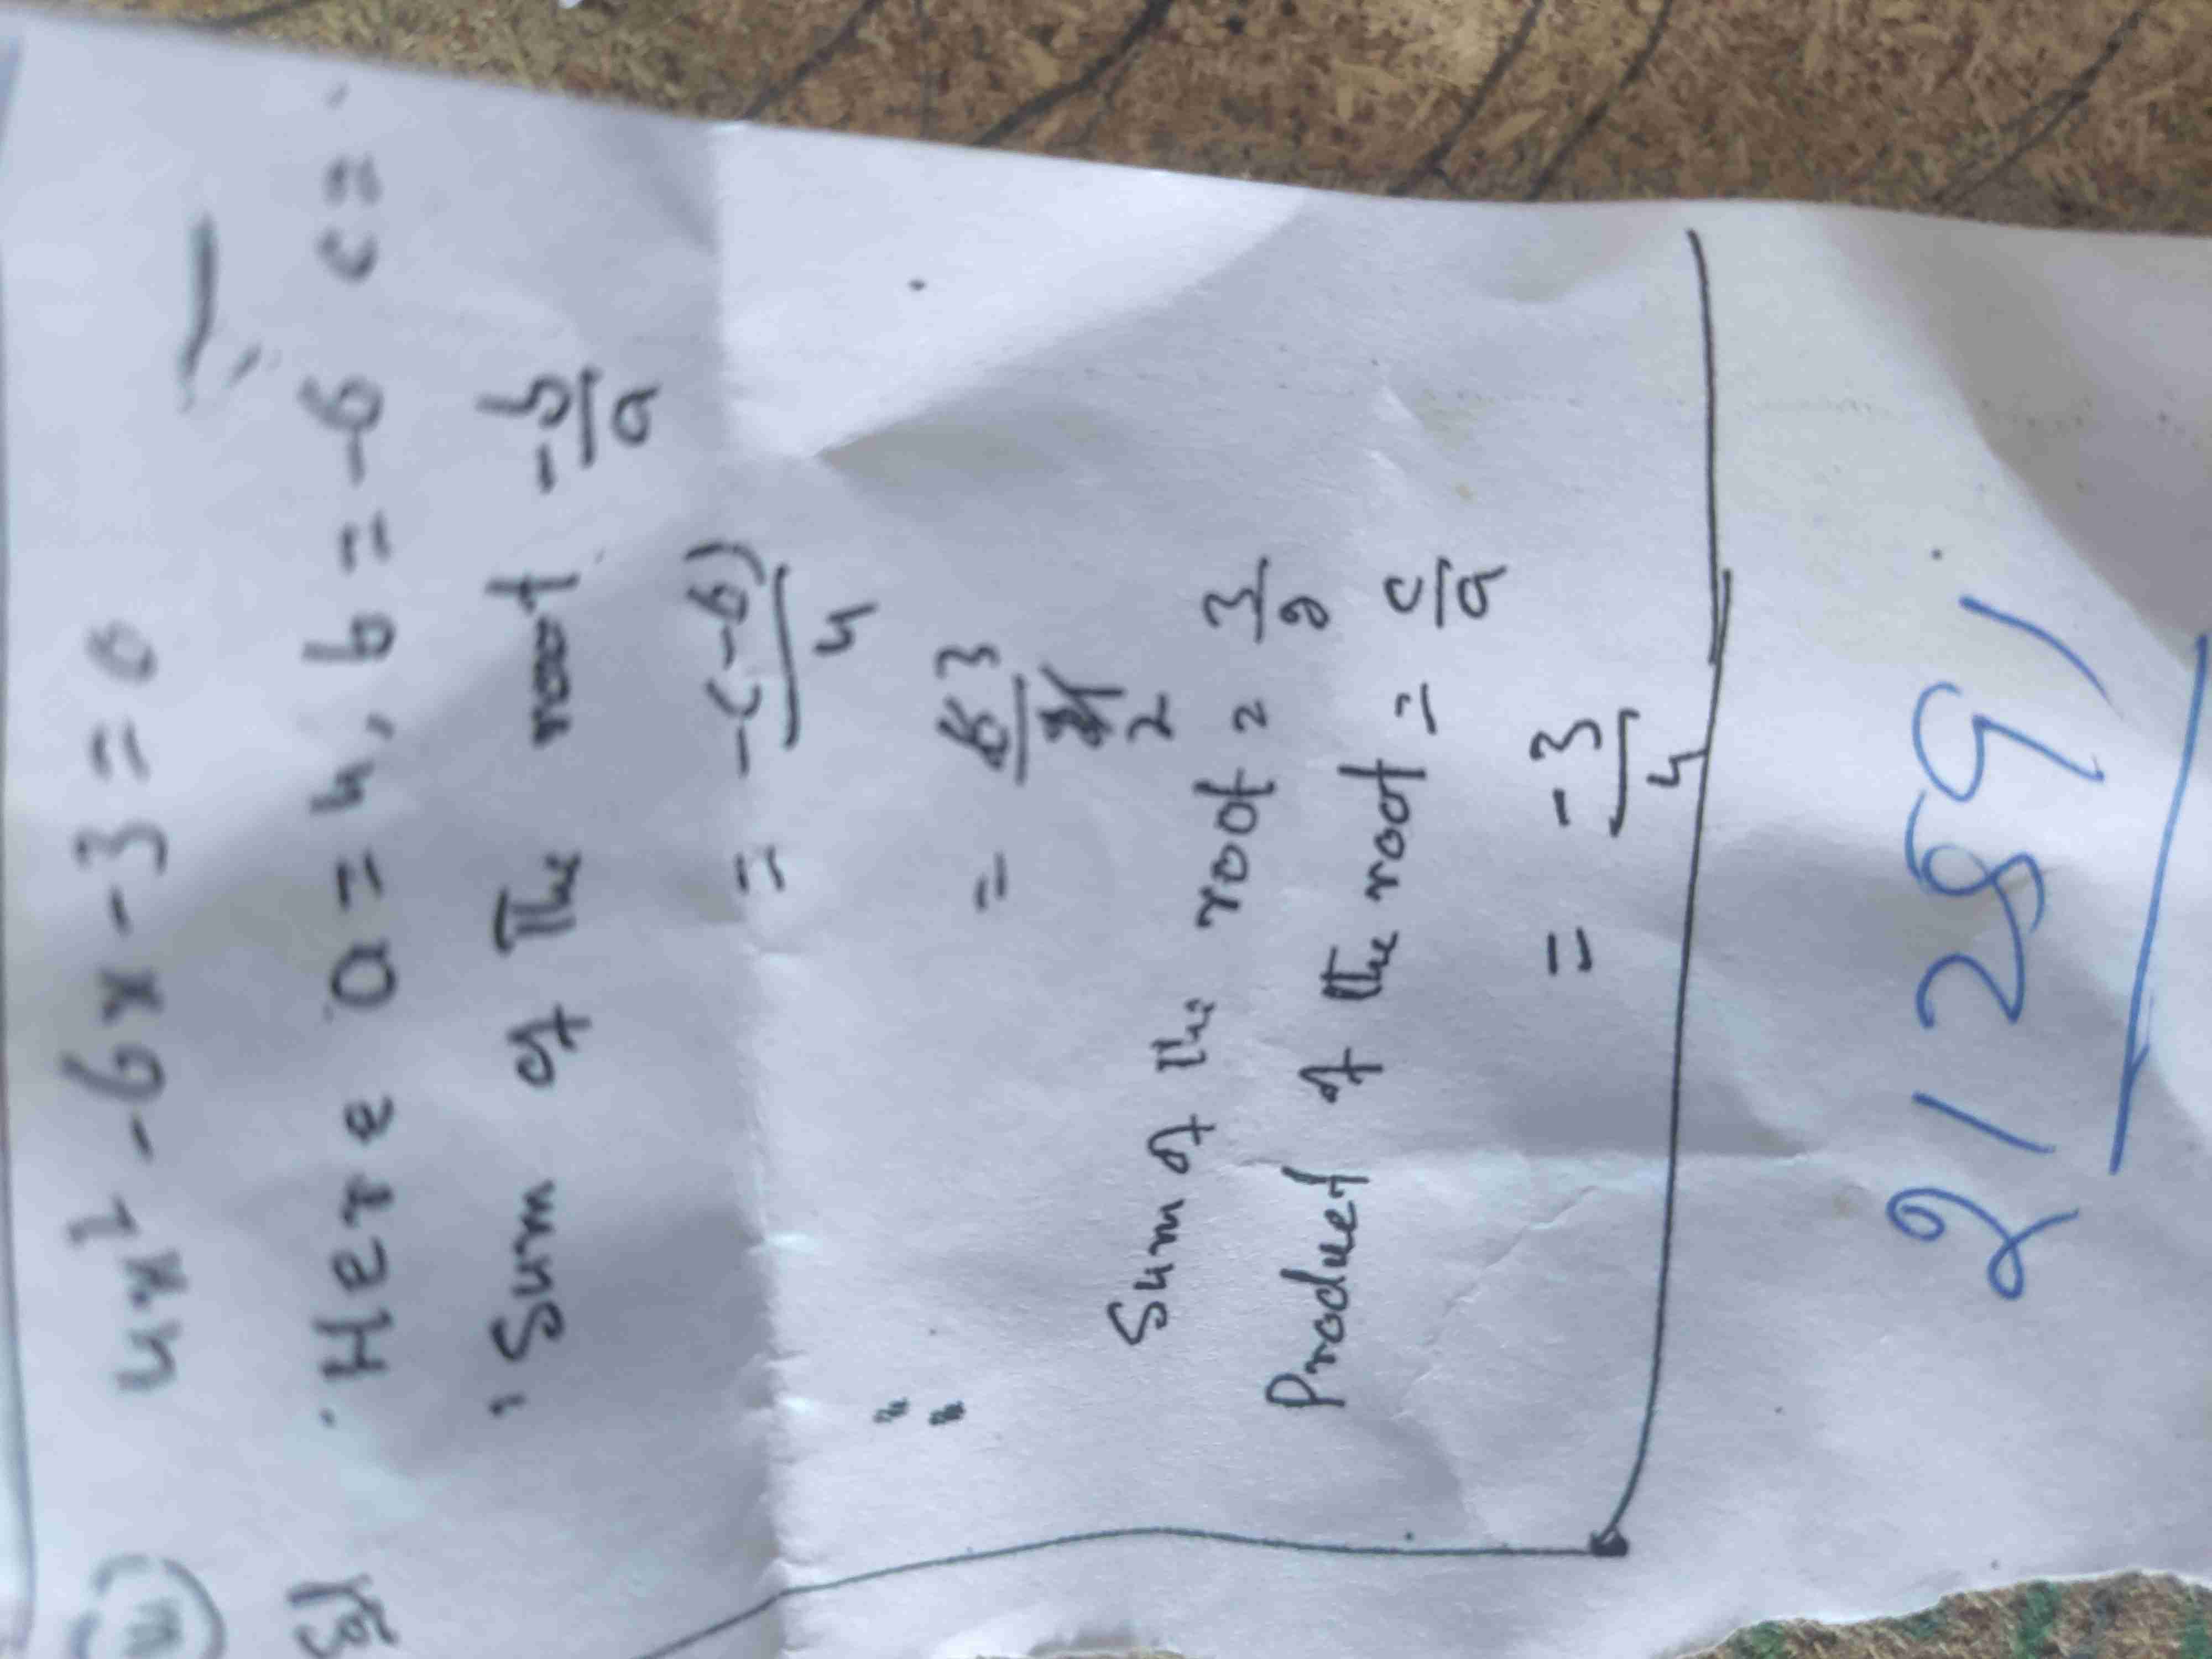 4x² - 6x - 3 = 0
Here a = 4, b = -6 c =
Sum of The root -b/a
= -(-6)/4
= 6 3/4 2
Sum of the root = 3/2
Product of the root = c/a
= -3/4
21289